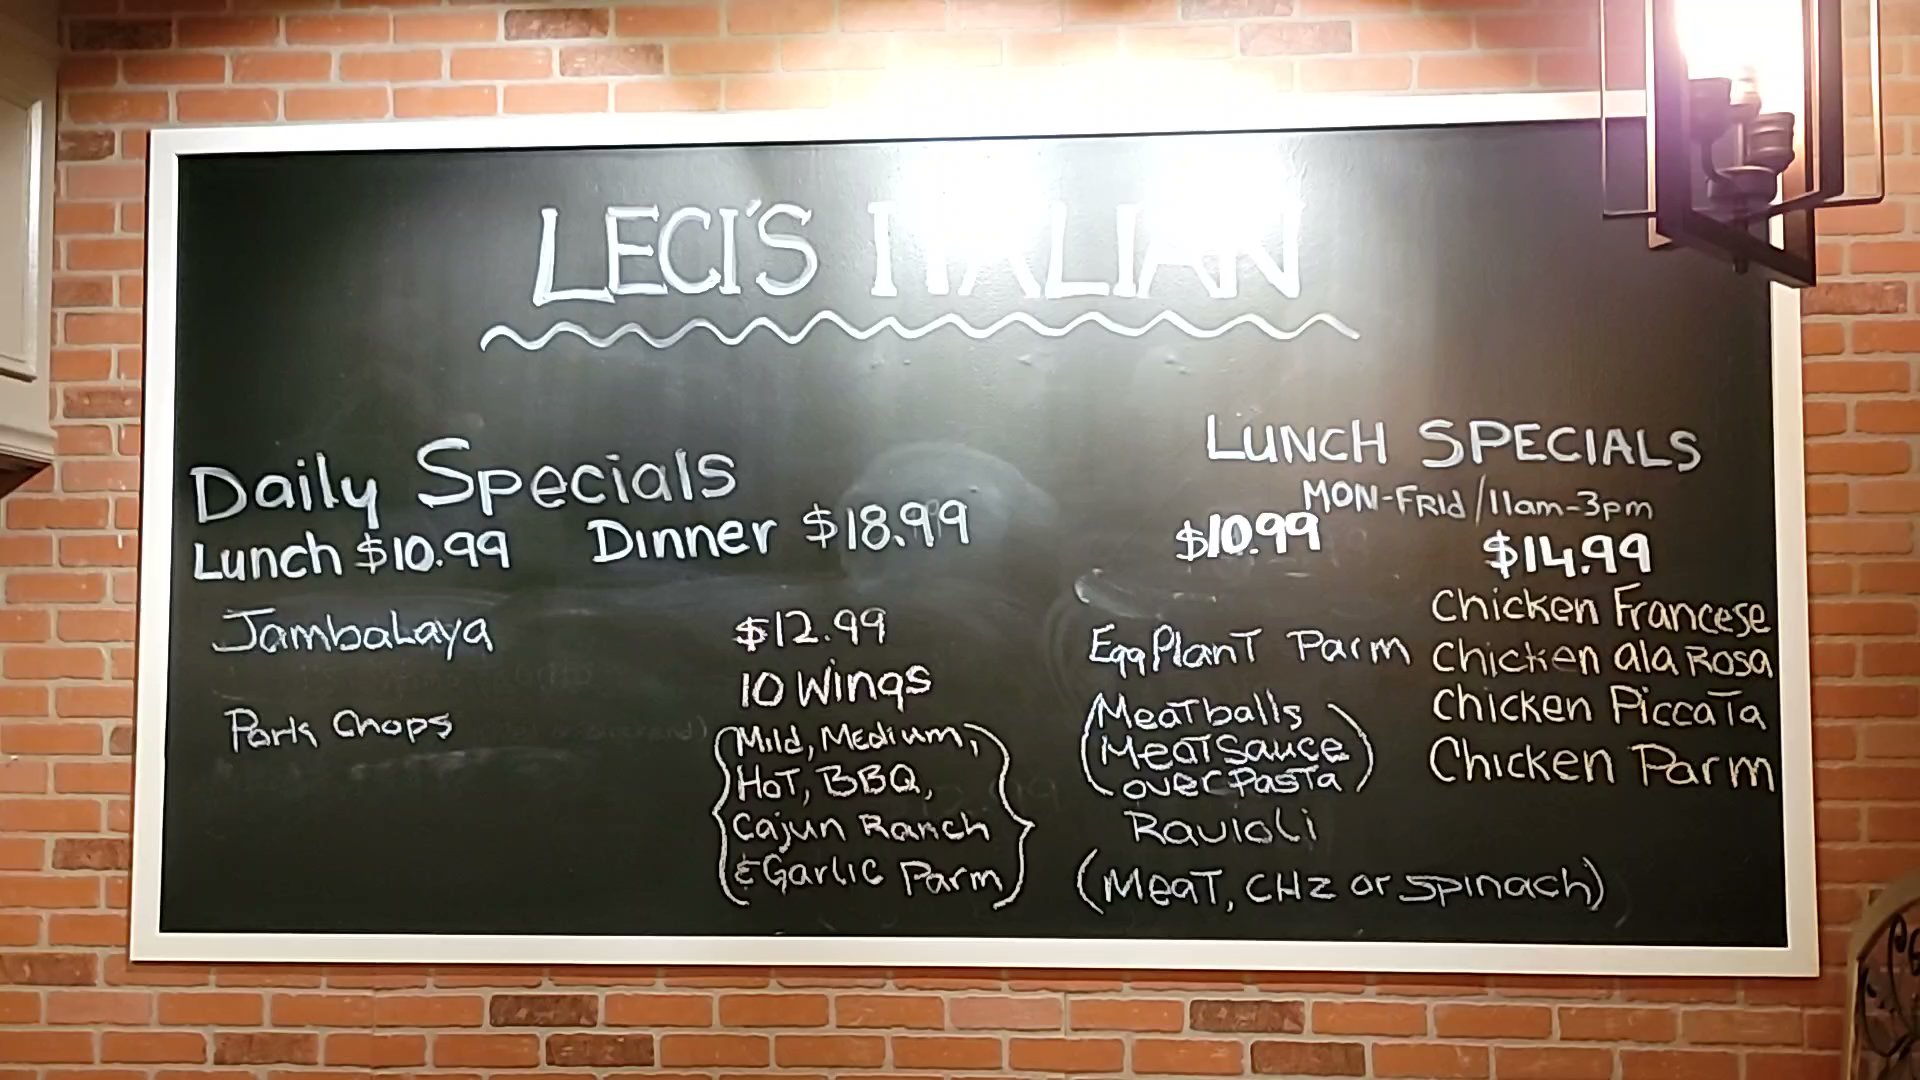 LECI'S ITALIAN
Daily Specials
Lunch $10.99 Dinner $18.99
Jambalaya
Pork Chops
$12.99
10 Wings
Mild, Medium,
Hot, BBQ,
Cajun Ranch
& Garlic Parm
LUNCH SPECIALS
MON-FRId/11am-3pm
$10.99
EggPlant Parm
(Meatballs
Meat Sauce
over Pasta)
Ravioli
(Meat, CHZ or Spinach)
$14.99
Chicken Francese
Chicken ala Rosa
Chicken Piccata
Chicken Parm